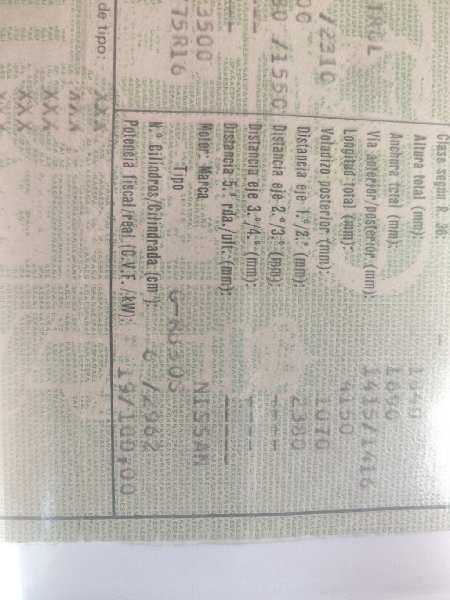 Clase según R. 36:
Altura total (mm):
Anchura total (mm): 1690
Vía anterior/posterior (mm): 1415/1416
Longitud total (mm): 4150
Voladizo posterior (mm): 1070
Distancia eje 1.º/2.º (mm): 2380
Distancia eje 2.º/3.º (mm): ----
Distancia eje 3.º/4.º (mm): ----
Distancia 5.ª rda./últ. (mm): -----
Motor: Marca NISSAN
Tipo
N.º Cilindros/Cilindrada (cm³): 6 /2962
Potencia fiscal/real (C.V.F./kW): 19/100,00
/2310
/1550
3500
75R16
de tipo: XXX
XXX
XXX
XXX